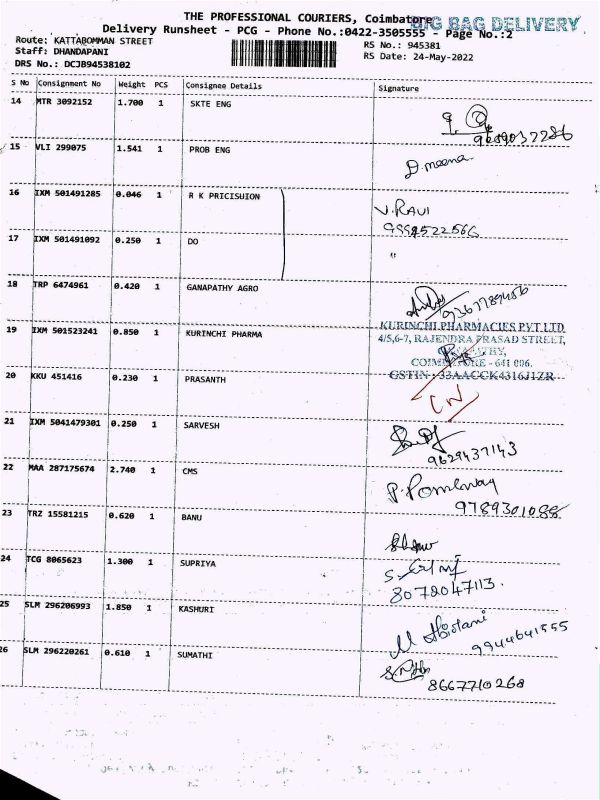 THE PROFESSIONAL COURIERS, Coimbatore
BIG BAG DELIVERY
Delivery Runsheet - PCG - Phone No.:0422-3505555 - Page No.:2
Route: KATTABOMMAN STREET
RS No.: 945381
Staff: DHANDAPANI
RS Date: 24-May-2022
DRS No.: DCJB94538102
S No Consignment No Weight PCS Consignee Details Signature
14 MTR 3092152 1.700 1 SKTE ENG
9689037286
15 VLI 299075 1.541 1 PROB ENG
D.meena
16 IXM 501491285 0.046 1 R K PRICISUION
V.RAVI
17 IXM 501491092 0.250 1 DO
"
18 TRP 6474961 0.420 1 GANAPATHY AGRO
9367789486
19 IXM 501523241 0.850 1 KURINCHI PHARMA
KURINCHI PHARMACIES PVT.LTD
4/5,6-7, RAJENDRA PRASAD STREET,
COIMBATORE - 641 006.
GSTIN : 33AACCK4316J1ZR
20 KKU 451416 0.230 1 PRASANTH
CN
21 IXM 5041479301 0.250 1 SARVESH
9629437143
22 MAA 287175674 2.740 1 CMS
9789301088
23 TRZ 15581215 0.620 1 BANU
24 TCG 8065623 1.300 1 SUPRIYA
8072047113.
25 SLM 296206993 1.850 1 KASHURI
9944641555
26 SLM 296220261 0.610 1 SUMATHI
8667710268